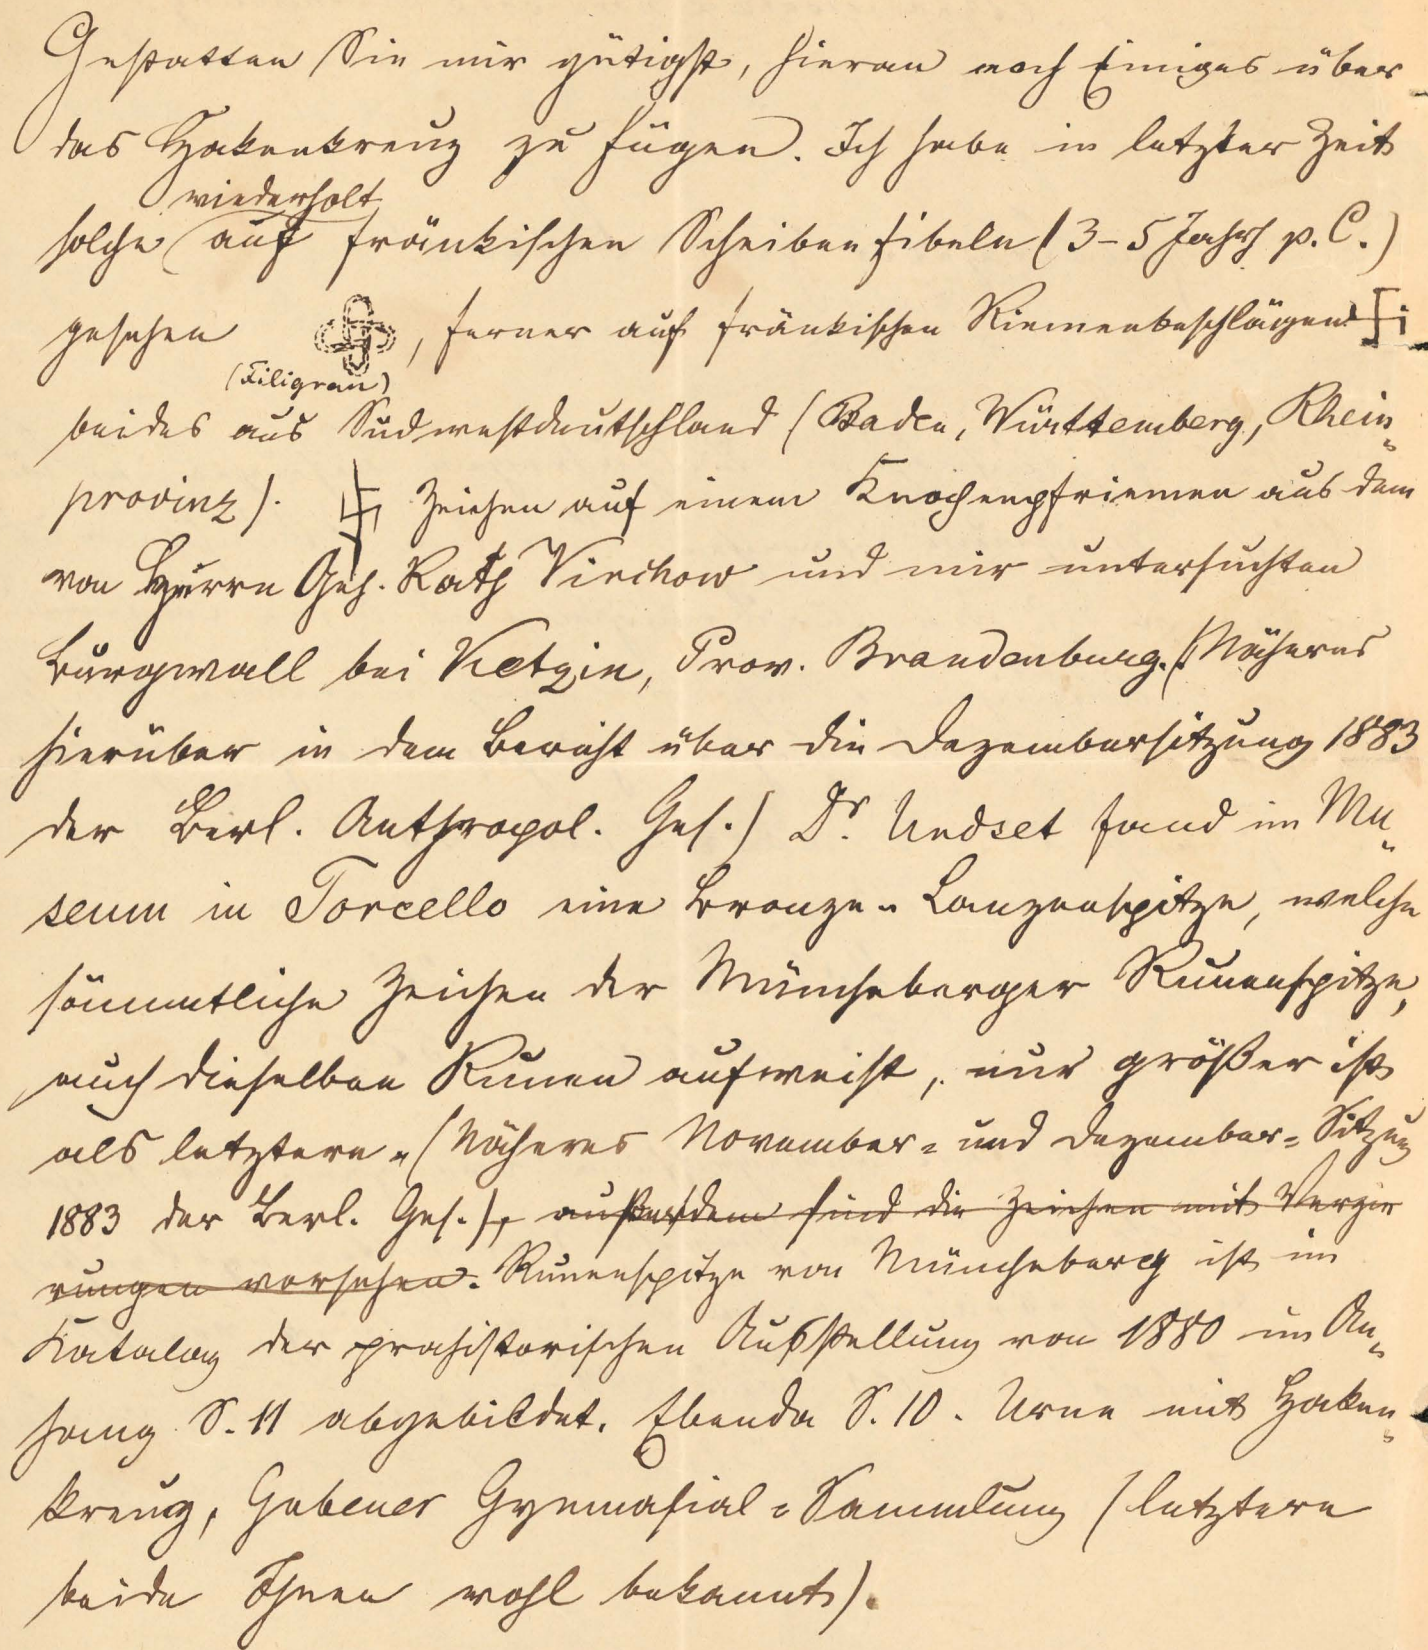 Gestatten Sie mir gütigst, hieran noch Einiges über
das Hakenkreuz zu fügen. Ich habe in letzter Zeit
wiederholt
solche auf fränkischen Scheibenfibeln (3-5 Jahrh p. C.)
gesehen , ferner auf fränkischen Riemenbeschlägen
(Filigran)
beides aus Südwestdeutschland (Baden, Württemberg, Rhein-
provinz). Zeichen auf einem Knochenpfriemen aus dem
von Herrn Geh. Rath Virchow und mir untersuchten
Burgwall bei Ketzin, Prov. Brandenburg. (Näheres
hierüber in dem Bericht über die Dezembersitzung 1883
der Berl. Anthropol. Ges.) Dr. Undset fand im Mu-
seum in Torcello eine Bronze-Lanzenspitze, welche
sämmtliche Zeichen der Müncheberger Runenspitze,
auch dieselben Runen aufweist, nur größer ist
als letztere. (Näheres November- und Dezember-Sitzung
1883 der Berl. Ges.), außerdem sind die Zeichen mit Verzie
rungen versehen. Runenspitze von Müncheberg ist im
Katalog der prähistorischen Ausstellung von 1880 im An-
hang S. 11 abgebildet. Ebenda S. 10. Urne mit Haken-
kreuz, Gubener Gymnasial-Sammlung (letztere
beide Ihnen wohl bekannt).